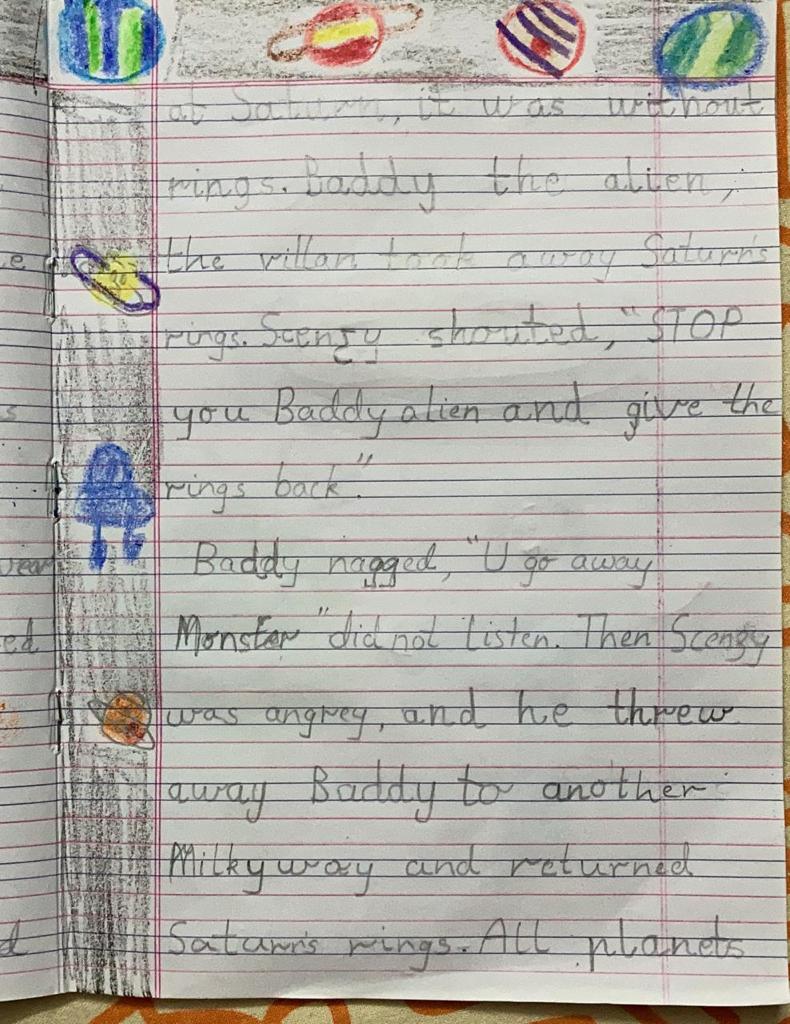 at Saturn, it was without
rings. Baddy the alien,
the villan took away Saturn's
rings. Scenzy shouted, "STOP
you Baddy alien and give the
rings back".
Baddy nagged, "U go away
Monster" did not listen. Then Scenzy
was angrey, and he threw
away Baddy to another
Milkyway and returned
Saturn's rings. All planets